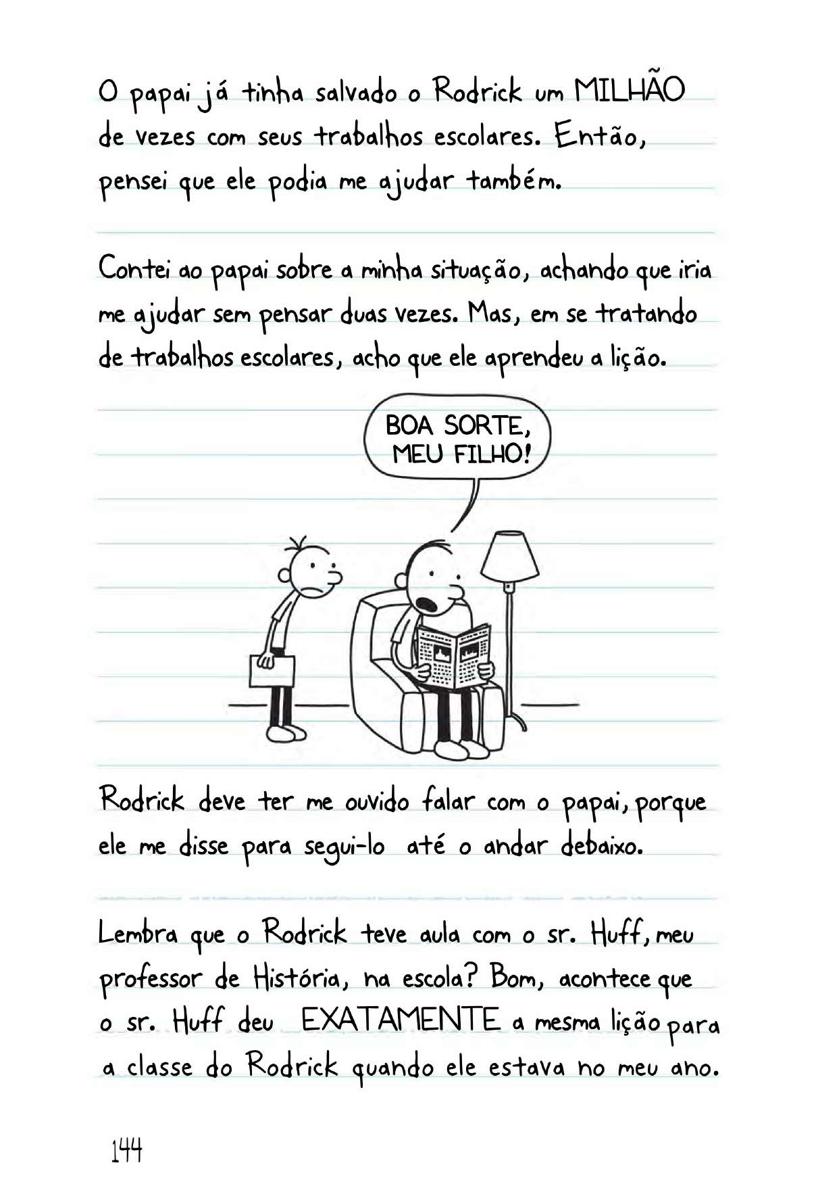 O papai já tinha salvado o Rodrick um MILHÃO
de vezes com seus trabalhos escolares. Então,
pensei que ele podia me ajudar também.
Contei ao papai sobre a minha situação, achando que iria
me ajudar sem pensar duas vezes. Mas, em se tratando
de trabalhos escolares, acho que ele aprendeu a lição.
BOA SORTE,
MEU FILHO!
Rodrick deve ter me ouvido falar com o papai, porque
ele me disse para segui-lo até o andar debaixo.
Lembra que o Rodrick teve aula com o sr. Huff, meu
professor de História, na escola? Bom, acontece que
o sr. Huff deu EXATAMENTE a mesma lição para
a classe do Rodrick quando ele estava no meu ano.
144